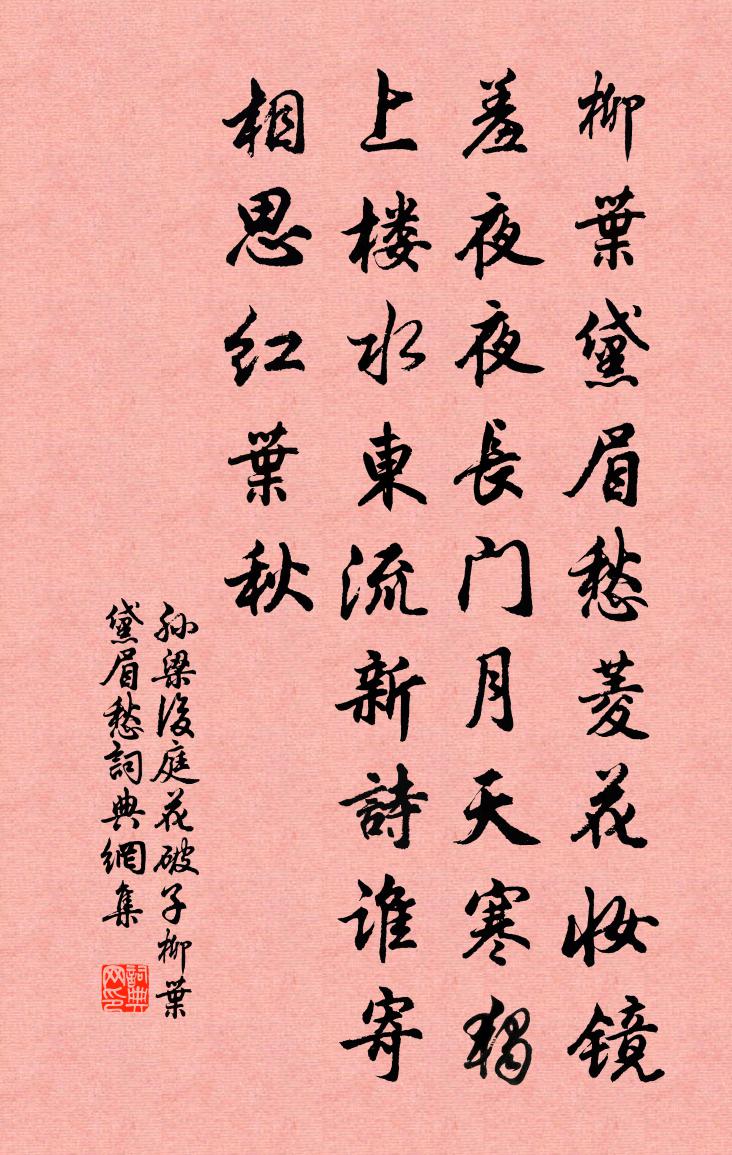 柳葉黛眉愁菱花妆镜
羞夜夜長门月天寒獨
上楼水東流新詩谁寄
相思红葉秋
孙梁後庭花破子柳葉
黛眉愁詞典網集
詞典网印